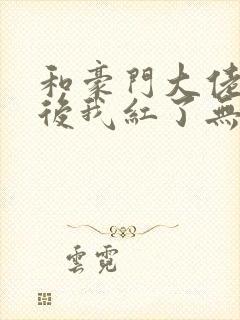 和豪門大佬
後我紅了無
雲霓